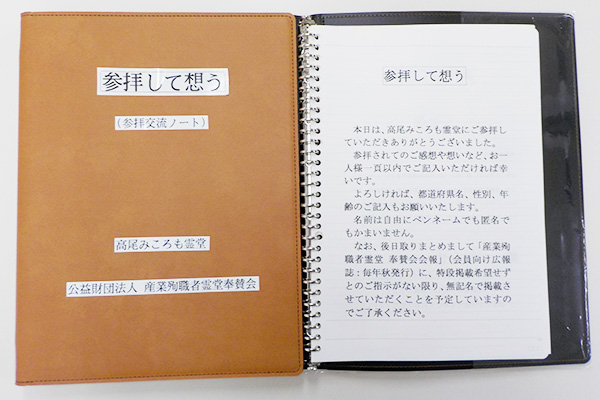 参拝して想う
（参拝交流ノート）
高尾みころも霊堂
公益財団法人 産業殉職者霊堂奉賛会
参拝して想う
本日は、高尾みころも霊堂にご参拝し
ていただきありがとうございました。
参拝されてのご感想や想いなど、お一
人様一頁以内でご記入いただければ幸
いです。
よろしければ、都道府県名、性別、年
齢のご記入もお願いいたします。
名前は自由にペンネームでも匿名で
もかまいません。
なお、後日取りまとめまして「産業殉
職者霊堂 奉賛会会報」（会員向け広報
誌：毎年秋発行）に、特段掲載希望せず
とのご指示がない限り、無記名で掲載さ
せていただくことを予定していますの
でご了承ください。